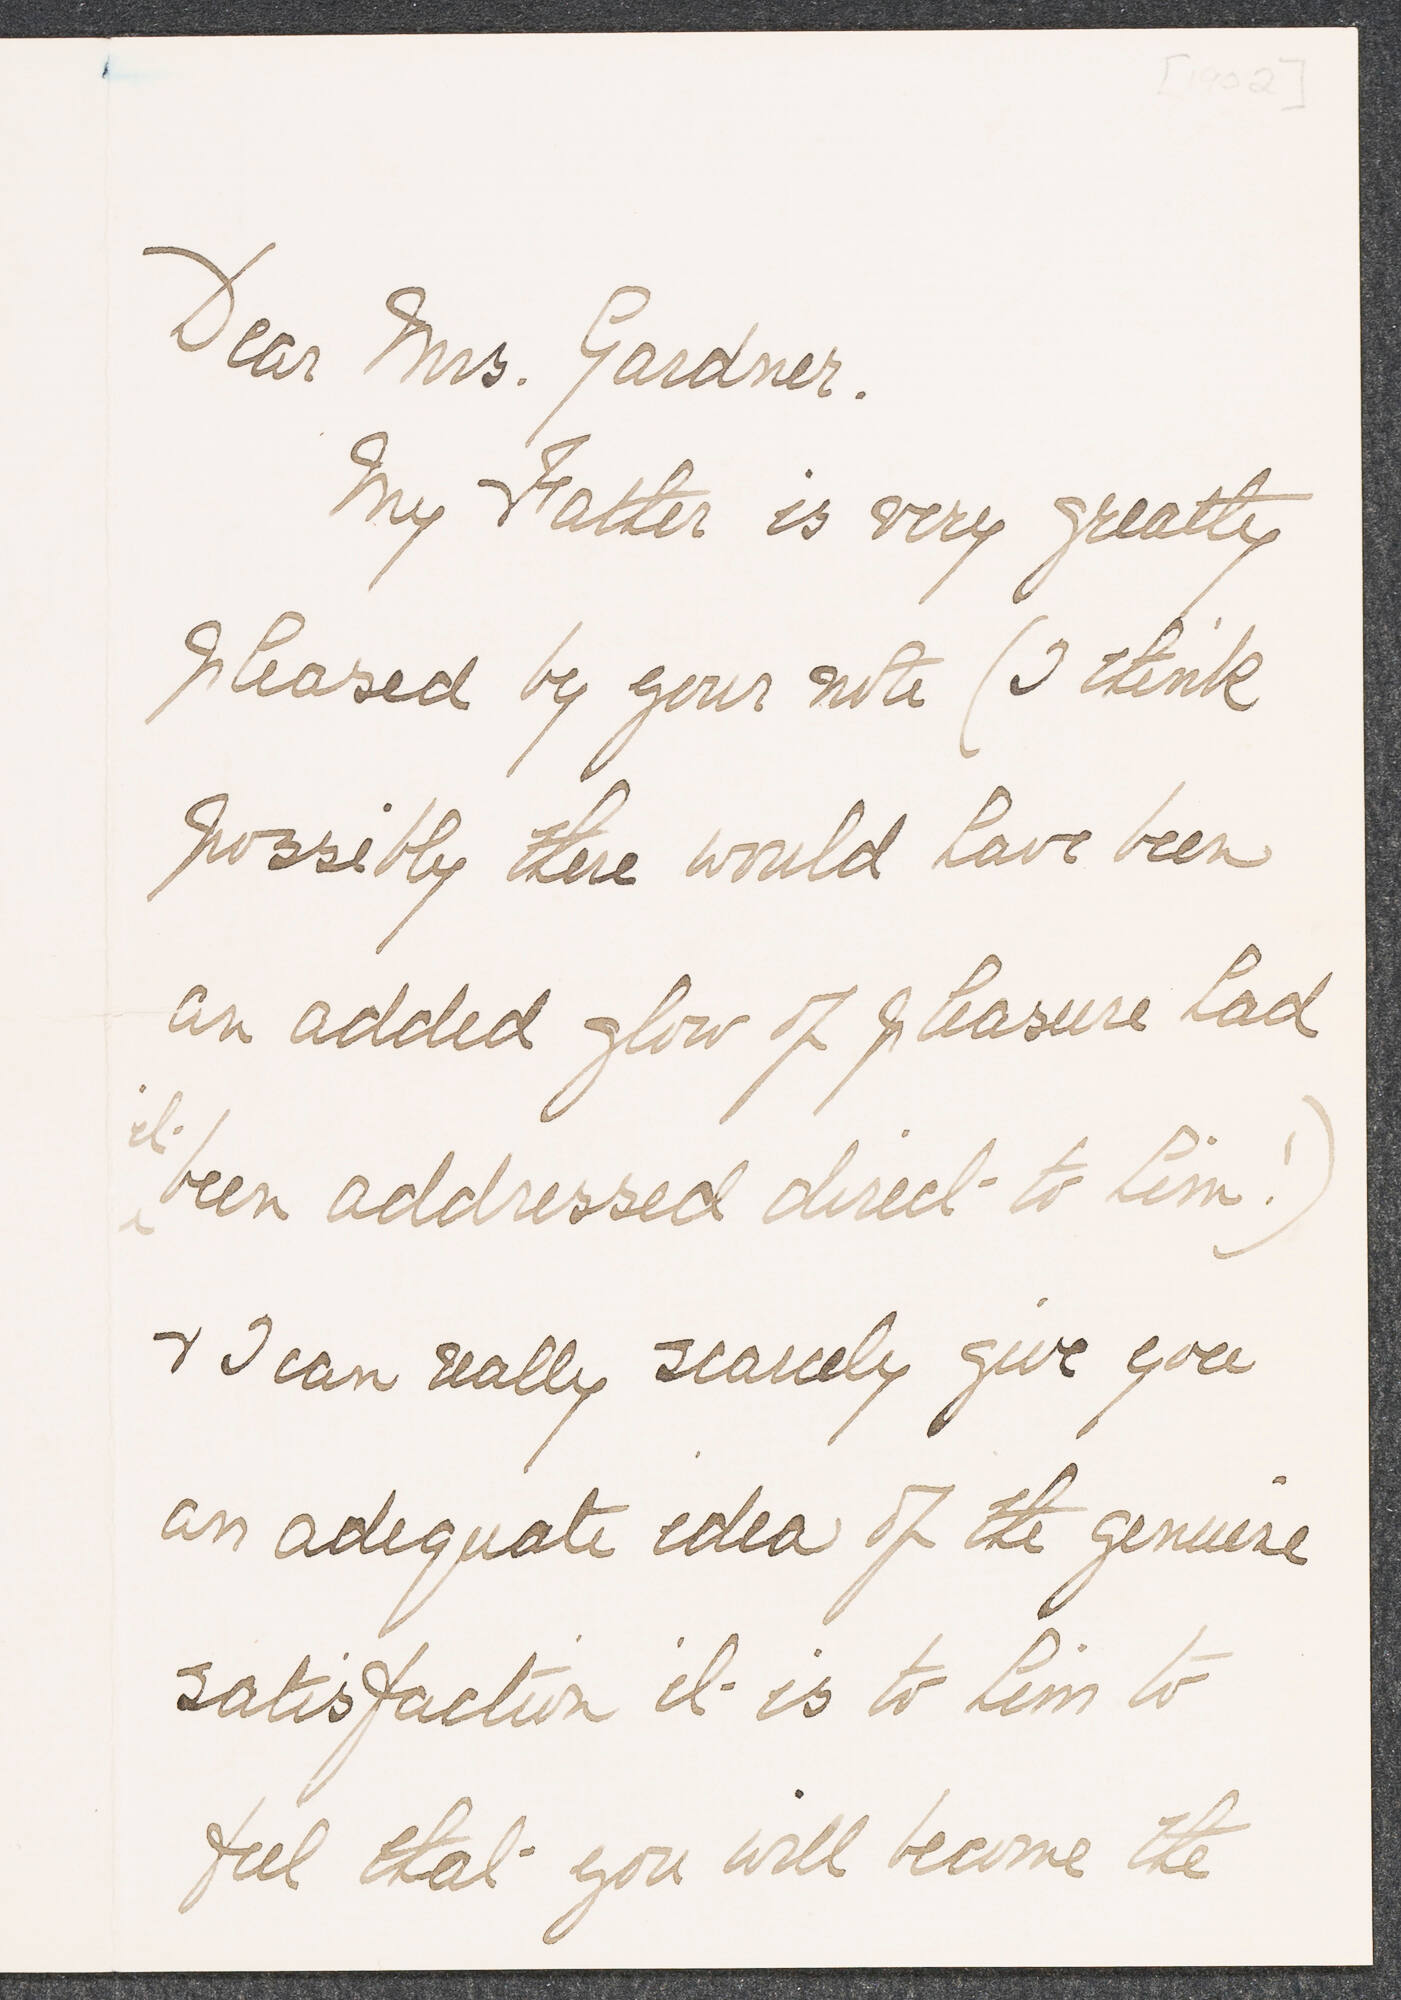 [1902]
Dear Mrs. Gardner.
My Father is very greatly
pleased by your note (I think
possibly there would have been
an added glow of pleasure had
it
been addressed direct to him!)
& I can really scarcely give you
an adequate idea of the genuine
satisfaction it is to him to
feel that you will become the